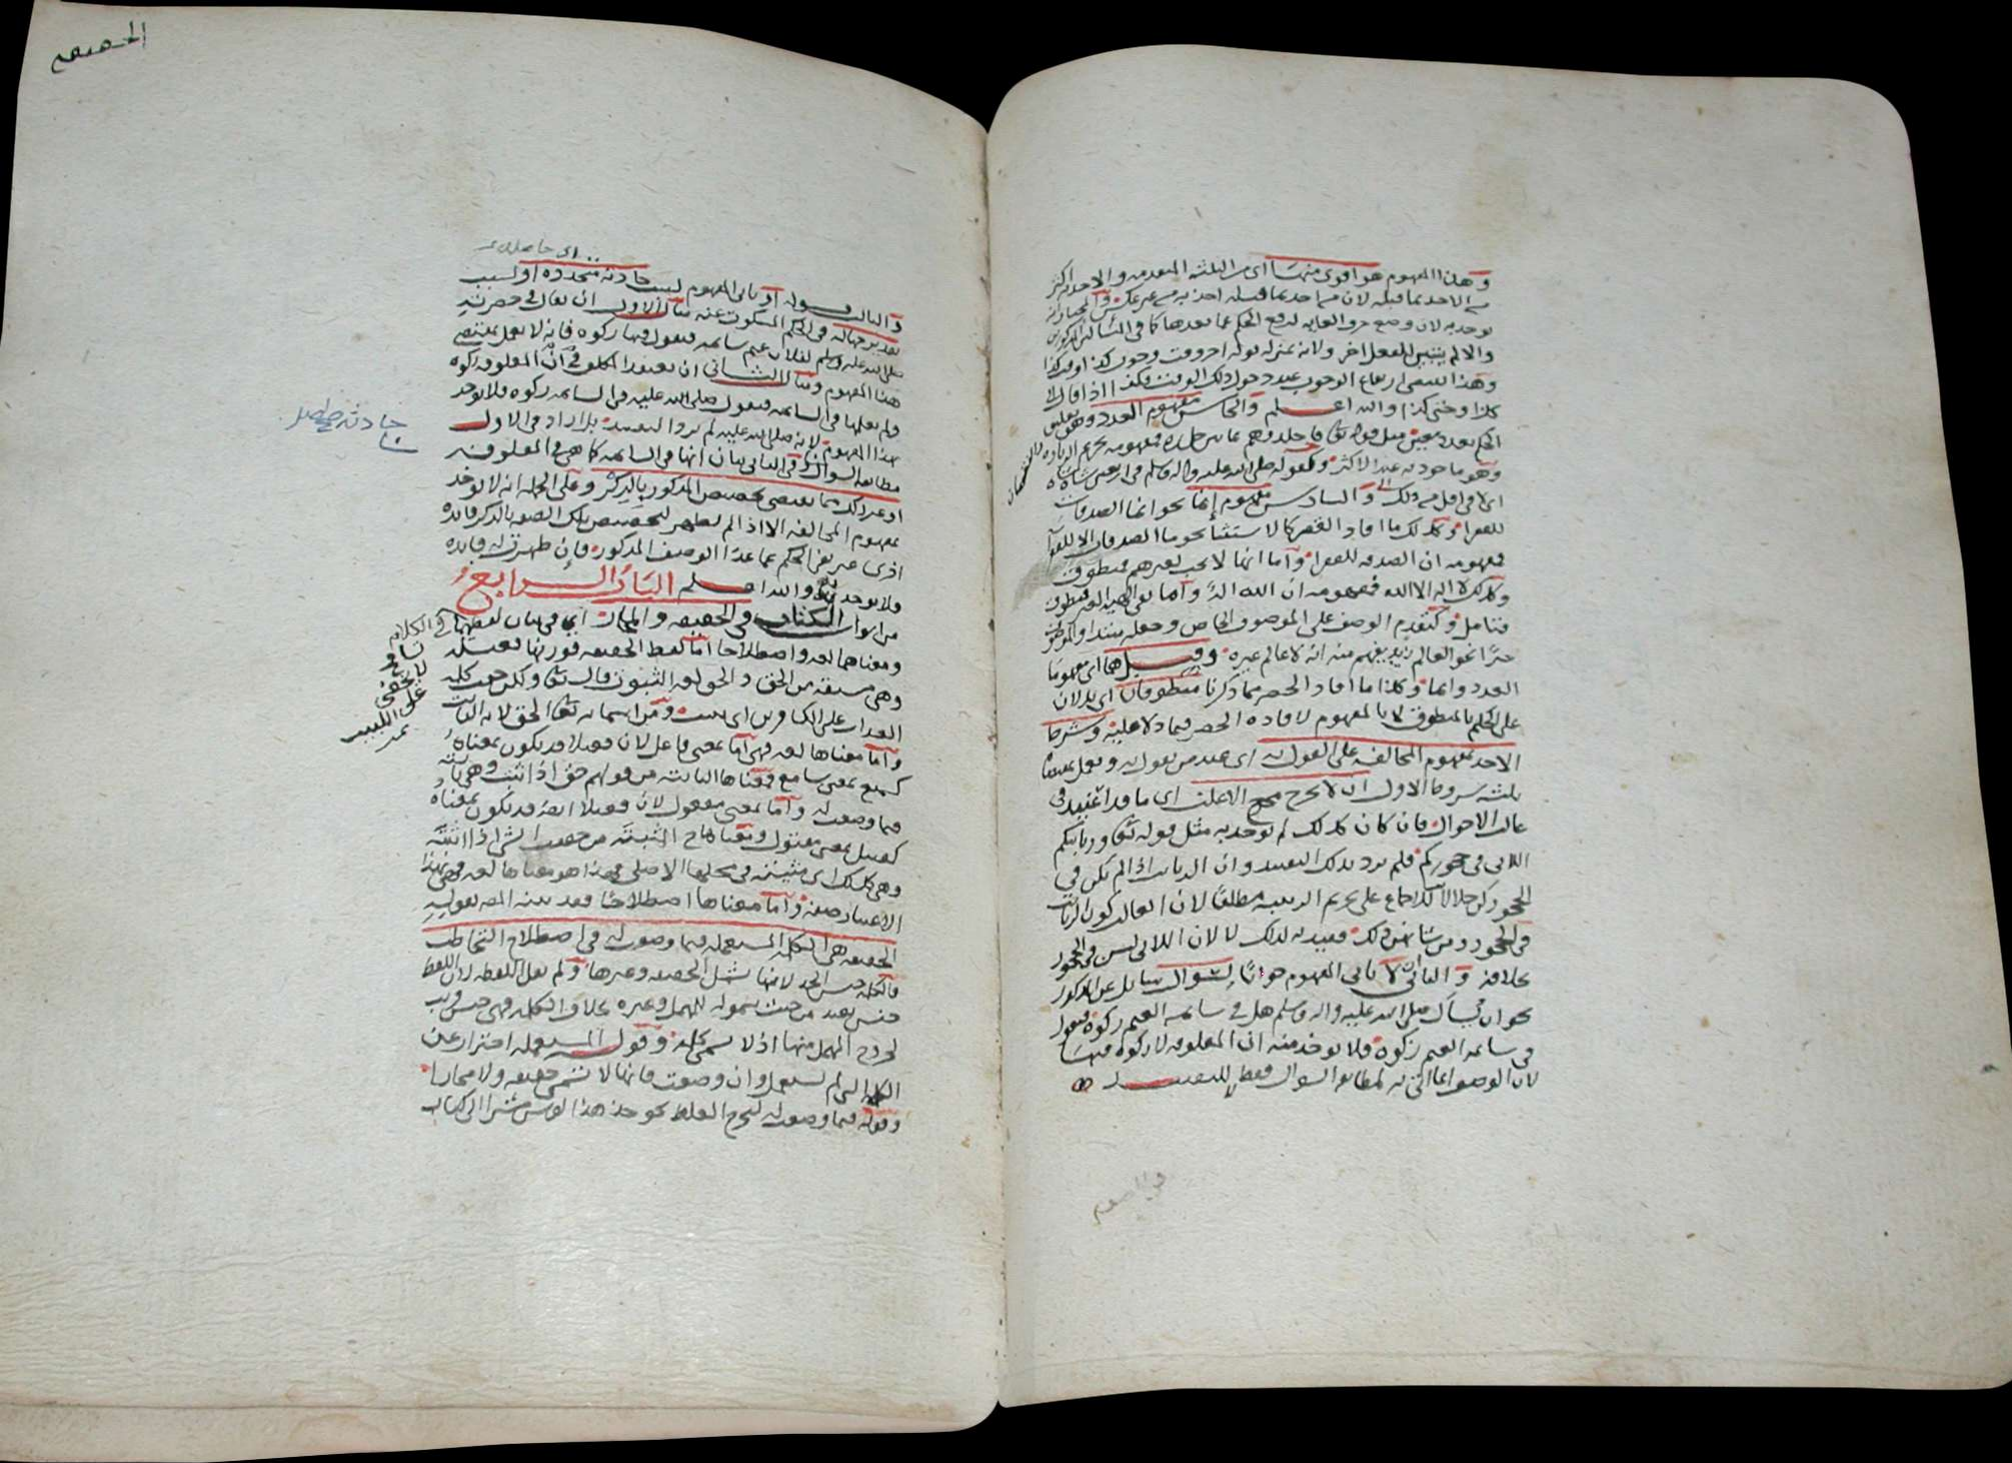 وهذا المفهوم هو اقوى منها اى من الثلثة المتقدمة والاخذ به اكثر
من الاخذ بما قبله لان من اخذ بما قبله اخذ به من غير عكس والمختار انه
يوخذ به لان وضع حرف الغايه لرفع الحكم عما بعدها كما فى
والا لم ينتبين لمعنى اخر ولانه بمنزله قوله اخر وقت وجوب كذا او
وهذا يقتضى ارتفاع الوجوب عند دخول ذلك الوقت وكذا اذا قال لا
كذا وحتى كذا والله اعلم والخامس مفهوم العدد وهو تعليق
الحكم بعدد معين مثل قوله تعالى فاجلدوهم ثمانين جلدة فمفهومه تحريم الزياده
وهو ماخوذ به عند الاكثر وكقوله صلى الله عليه واله وسلم فى اربعين شاة شاة
اى لا فى اقل من ذلك والسادس مفهوم إنما نحو انما الصدقات
للفقراء وكذلك ما افاد الحصر كالاستثنا نحو ما الصدقات الا للفقرآ
فمفهومه ان الصدقه للفقراء واما انها لا تجب لغيرهم فمنطوق
وكذلك لا اله الا الله فمفهومه ان الله اله واما نفى الهيه الغير فمنطوق
فتامل وكتقديم الوصف على الموصوف الخاص وجعله مبتدا والموصوف
خبرًا نحو العالم زيد يفهم منه انه لا عالم غيره وقيل هما اى مفهوما
العدد وانما وكذا ما افاد الحصر مما ذكرنا منطوقان اى يدلان
على الحكم بالمنطوق لا بالمفهوم لافاده الحصر فيما دلا عليه وشرط
الاخذ بمفهوم المخالفه على القول به اى عند من يقول به ويعمل بمقتضاه
ثلثه شروط الاول ان لا يخرج مخرج الاغلب اى ما قد اعتيد فى
غالب الاحوال فان كان كذلك لم يوخذ به مثل قوله تعالى وربائبكم
اللاتى فى حجوركم فلم يرد بذلك التقييد وان الربائب اذا لم تكن فى
الحجور كن حلالا للاجماع على تحريم الربيبه مطلقًا لان الغالب كون الربائب
فى الحجور ومن شانهن ذلك فقيد به لذلك لا لان اللاتى لسن فى الحجور
بخلافه والثانى ان لا ياتى المفهوم جوابًا لسوال سائل عن المذكور
نحو ان يسأل صلى الله عليه واله وسلم هل فى سائمه الغنم زكوة فيقول
فى سائمه الغنم زكوة فلا يوخذ منه ان المعلوفه لا زكوة فيها
لان الوصف انما اتى به لمطابقه السوال فقط لا للتقييد
الحقيقه
اى حاصله
والثالث قوله او ياتى المفهوم لسبب حادثه متجدده او لسبب
تقدير جهاله فى الحكم المسكوت عنه مثال الاول ان يقال فى حضرته
صلى الله عليه وسلم لفلان غنم سائمه فيقول فيها زكوه فانه لا يعمل بمقتضى
هذا المفهوم ومثال الثانى ان يعتقد المكلف فى ان المعلوفه زكوه
ولم يعلمها فى السائمه فيقول صلى الله عليه فى السائمه زكوه فلا يوخذ
بهذا المفهوم لانه صلى الله عليه لم يرد التقييد بل اراد فى الاول
مطابقه السوال وفى الثانى بيان انها فى السائمه كما هى فى المعلوفه
او غير ذلك مما يقتضى تخصيص المذكور بالذكر وعلى الجمله انه لا يوخذ
بمفهوم المخالفه الا اذا لم يظهر لتخصيص تلك الصفه بالذكر فائده
اخرى غير نفى الحكم عما عدا الوصف المذكور فان ظهرت له فائده
فلا يوخذ به والله اعلم الباب الرابع
من ابواب الكتاب فى الحقيقه والمجاز اى فى بيان لفظهما
ومعناهما لغه واصطلاحا اما لفظ الحقيقه فوزنها فعيله
وهى مشتقه من الحق والحق لغه الثبوت قال تعالى ولكن حقت كلمه
العذاب على الكافرين اى ثبت ومن اسمائه تعالى الحق لانه الثابت
واما معناها لغه فهى اما بمعنى فاعل لان فعيلا قد يكون بمعناه
كسميع بمعنى سامع فمعناها الثابته من قولهم حق اذا ثبت وهى ثابته
فيما وضعت له واما بمعنى مفعول لان فعيلا ايضا قد يكون بمعناه
كقتيل بمعنى مقتول ومعناها ح المثبته من حققت الشى اذا اثبته
وهى كذلك اى مثبته فى محلها الاصلى فهذا هو معناها لغه فهى بهذا
الاعتبار صفه واما معناها اصطلاحا فقد بينه المص بقوله
الحقيقه هى الكلمه المستعمله فيما وضعت له فى اصطلاح التخاطب
فالكلمه جنس الحد لانها تشمل الحقيقه وغيرها ولم يقل اللفظه لان اللفظ
جنس بعيد من حيث شموله للمهمل وغيره بخلاف الكلمه فهى جنس قريب
لخروج المهمل منها اذ لا يسمى كلمه وقوله المستعمله احتراز عن
الكلمه التى لم تستعمل وان وضعت فانها لا تسمى حقيقه ولا مجازا
وقوله فيما وضعت له ليخرج الغلط نحو خذ هذا الفرس مشيرا الى كتاب
حادثه
فى الكلام
تسامح
لا يخفى
على اللبيب